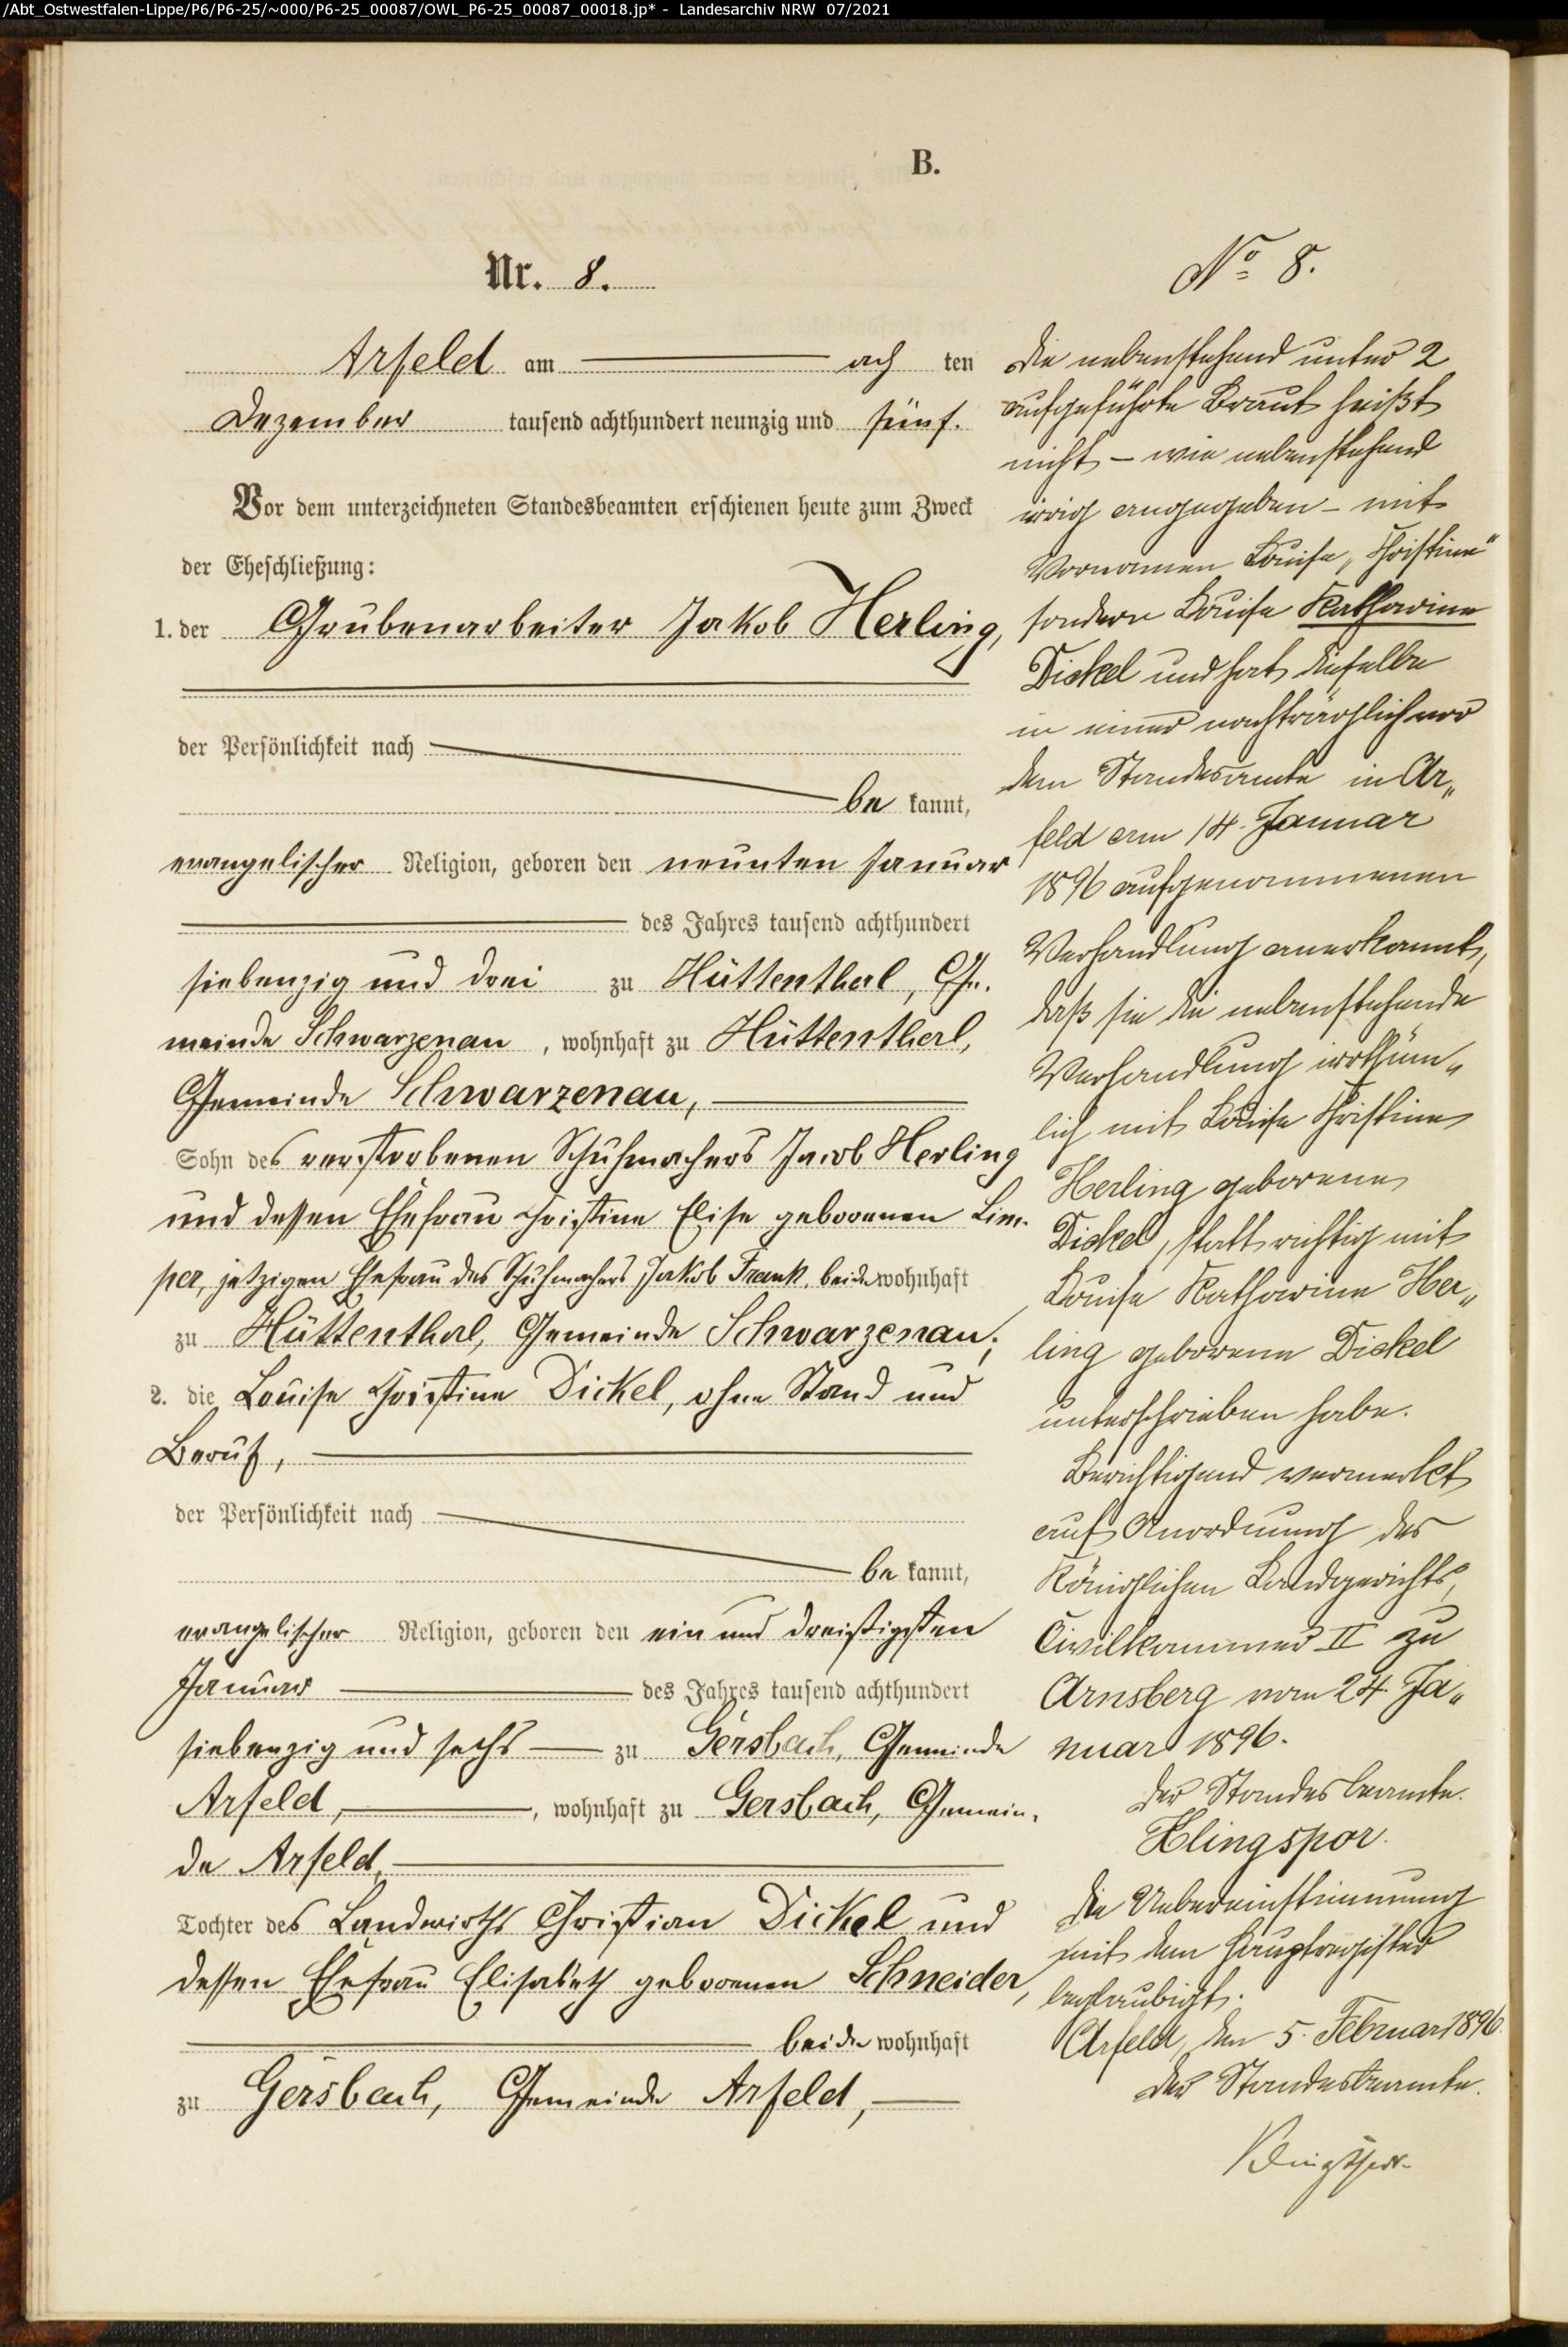 /Abt_Ostwestfalen-Lippe/P6/P6-25/~000/P6-25_00087/OWL_P6-25_00087_00018.jp* - Landesarchiv NRW 07/2021
B.
Nr. 8.
Arfeld am ach ten
Dezember tausend achthundert neunzig und fünf.
Vor dem unterzeichneten Standesbeamten erschienen heute zum Zweck
der Eheschließung:
1. der Grubenarbeiter Jakob Herling,
der Persönlichkeit nach
be kannt,
evangelischer Religion, geboren den neunten Januar
des Jahres tausend achthundert
siebenzig und drei zu Hüttenthal, Ge-
meinde Schwarzenau, wohnhaft zu Hüttenthal,
Gemeinde Schwarzenau,
Sohn des verstorbenen Schuhmachers Jacob Herling
und dessen Ehefrau Christine Elise geborenen Lim-
per, jetzigen Ehefrau des Schuhmachers Jakob Frank, beide wohnhaft
zu Hüttenthal, Gemeinde Schwarzenau;
2. die Louise Christine Dickel, ohne Stand und
Beruf,
der Persönlichkeit nach
be kannt,
evangelischer Religion, geboren den ein und dreißigsten
Januar des Jahres tausend achthundert
siebenzig und sechs zu Gersbach, Gemeinde
Arfeld, wohnhaft zu Gersbach, Gemein-
de Arfeld,
Tochter des Landwirths Christian Dickel und
dessen Ehefrau Elisabeth geborenen Schneider,
beide wohnhaft
zu Gersbach, Gemeinde Arfeld,
No 8.
Die nebenstehend unter 2
aufgeführte Braut heißt
nicht – wie nebenstehend
irrig angegeben – mit
Vornamen Louise „Christine"
sondern Louise Katharine
Dickel und hat dieselbe
in einer nachträglich vor
dem Standesamte in Ar„
feld am 14. Januar
1896 aufgenommenen
Verhandlung anerkannt,
daß sie die nebenstehende
Verhandlung irrthüm„
lich mit Louise Christine
Herling geborene
Dickel, statt richtig mit
Louise Katharine Her„
ling geborene Dickel
unterschrieben habe.
Berichtigend vermerkt
auf Anordnung des
Königlichen Landgerichts,
Civilkammer II zu
Arnsberg vom 24. Ja„
nuar 1896.
Der Standesbeamte.
Klingspor.
Die Uebereinstimmung
mit dem Hauptregister
beglaubigt.
Arfeld, den 5. Februar 1896.
Der Standesbeamte.
Klingspor.